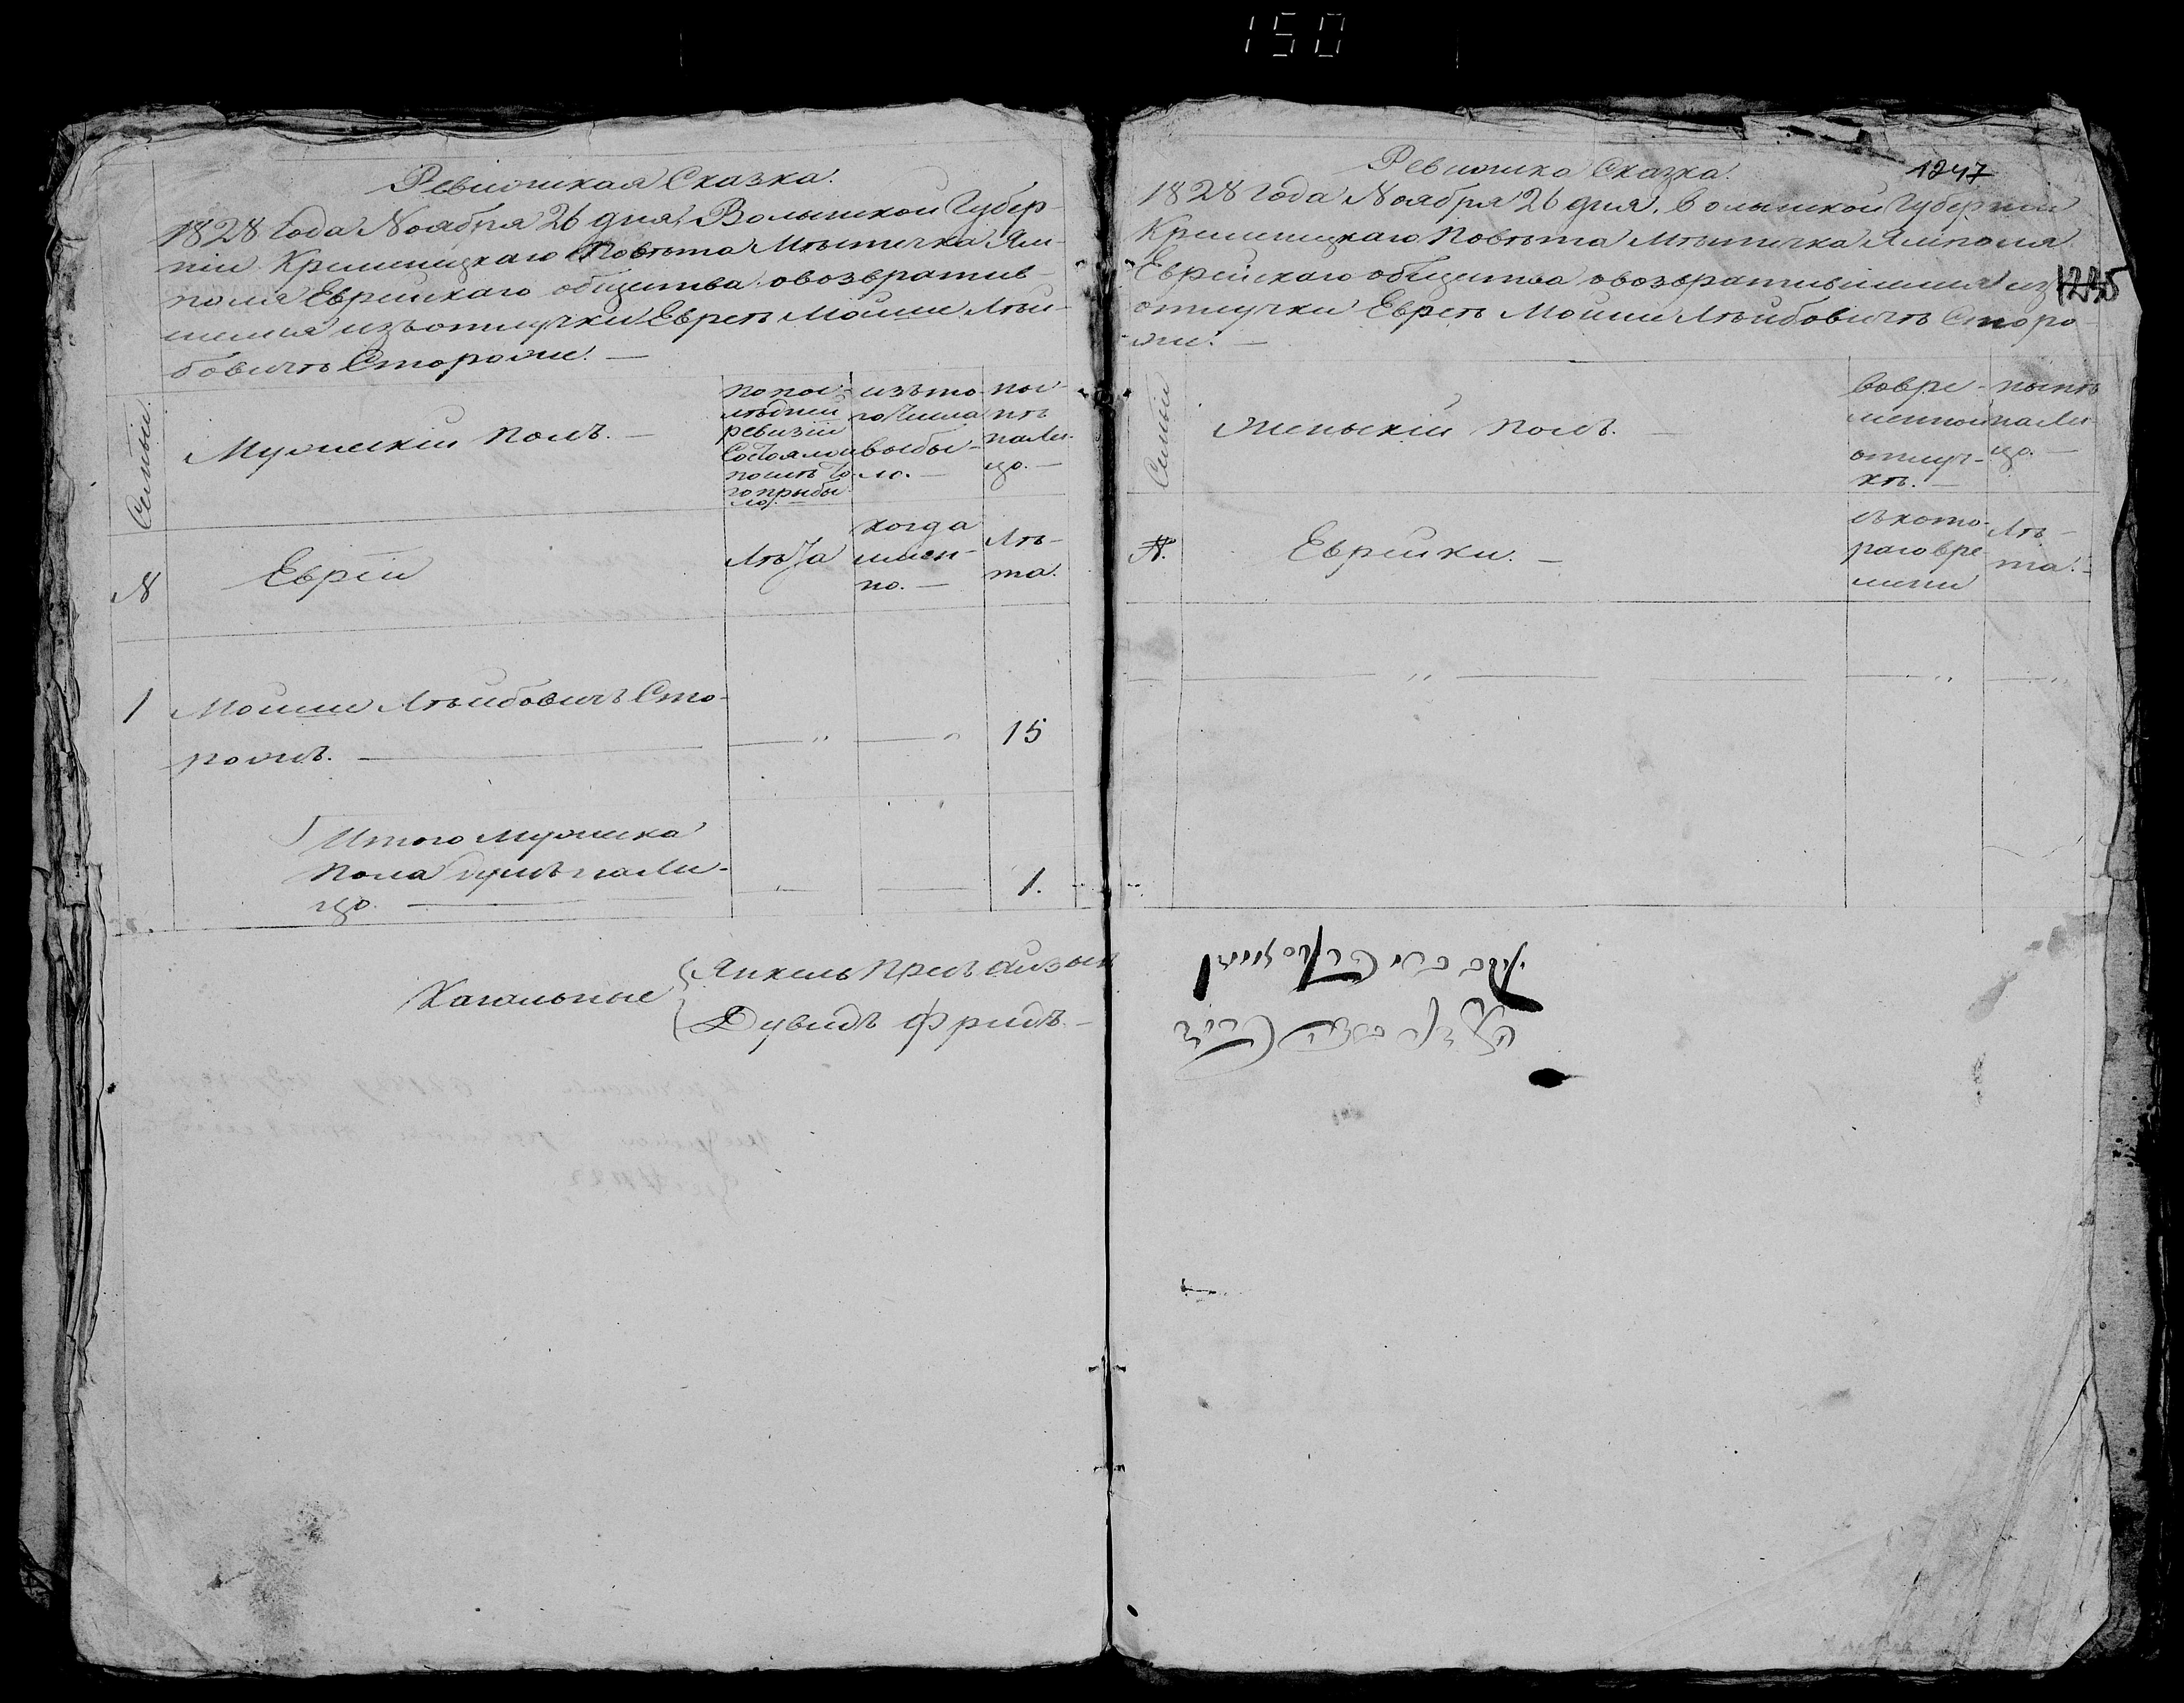 150
Ревижская Сказка.
1828 Года Ноября 26 дня, Волынской Губер-
ніи Кременецкаго Повѣта Мѣстечка Ям-
поля Еврейскаго общества овозвратив-
шемся изъ отлучки Еврею Мойше Лей-
бовичѣ Стороже. —
Семьи
Мужескій полъ. —
по пос-
лѣдней
ревизіи
Состояло и
послѣ то
го прыбы
ло. —
изъ то
го Числа
выбы-
ло. —
ны-
нѣ
на Ли-
цо. —
№
Евреи
Лѣта
когда
имен-
но. —
Лѣ-
та.
1 Мойше Лейбовичъ Сто-
рожъ. — — „ — „ 15
Итого мужеска
пола душъ на Ли-
цо. — — — 1.
Кагальные
Янкель
Дувидъ Фридъ. —
Ревижска Сказка. 1247
1828 Года Ноября 26 дня, Волынской Губерніи
Кременецкаго Повѣта Мѣстечка Ямполя
Еврейскаго общества овозвратившемся изъ 1235
отлучки Еврею Мойше Лейбовичѣ Сторо-
же. —
Семьи
Женьскій полъ. —
вовре-
менной
отлуч-
кѣ. —
нынѣ
на Ли-
цо. —
№.
Еврейки. —
съ кото-
раго вре
мени
Лѣ-
та. —
— „ — — „ — „